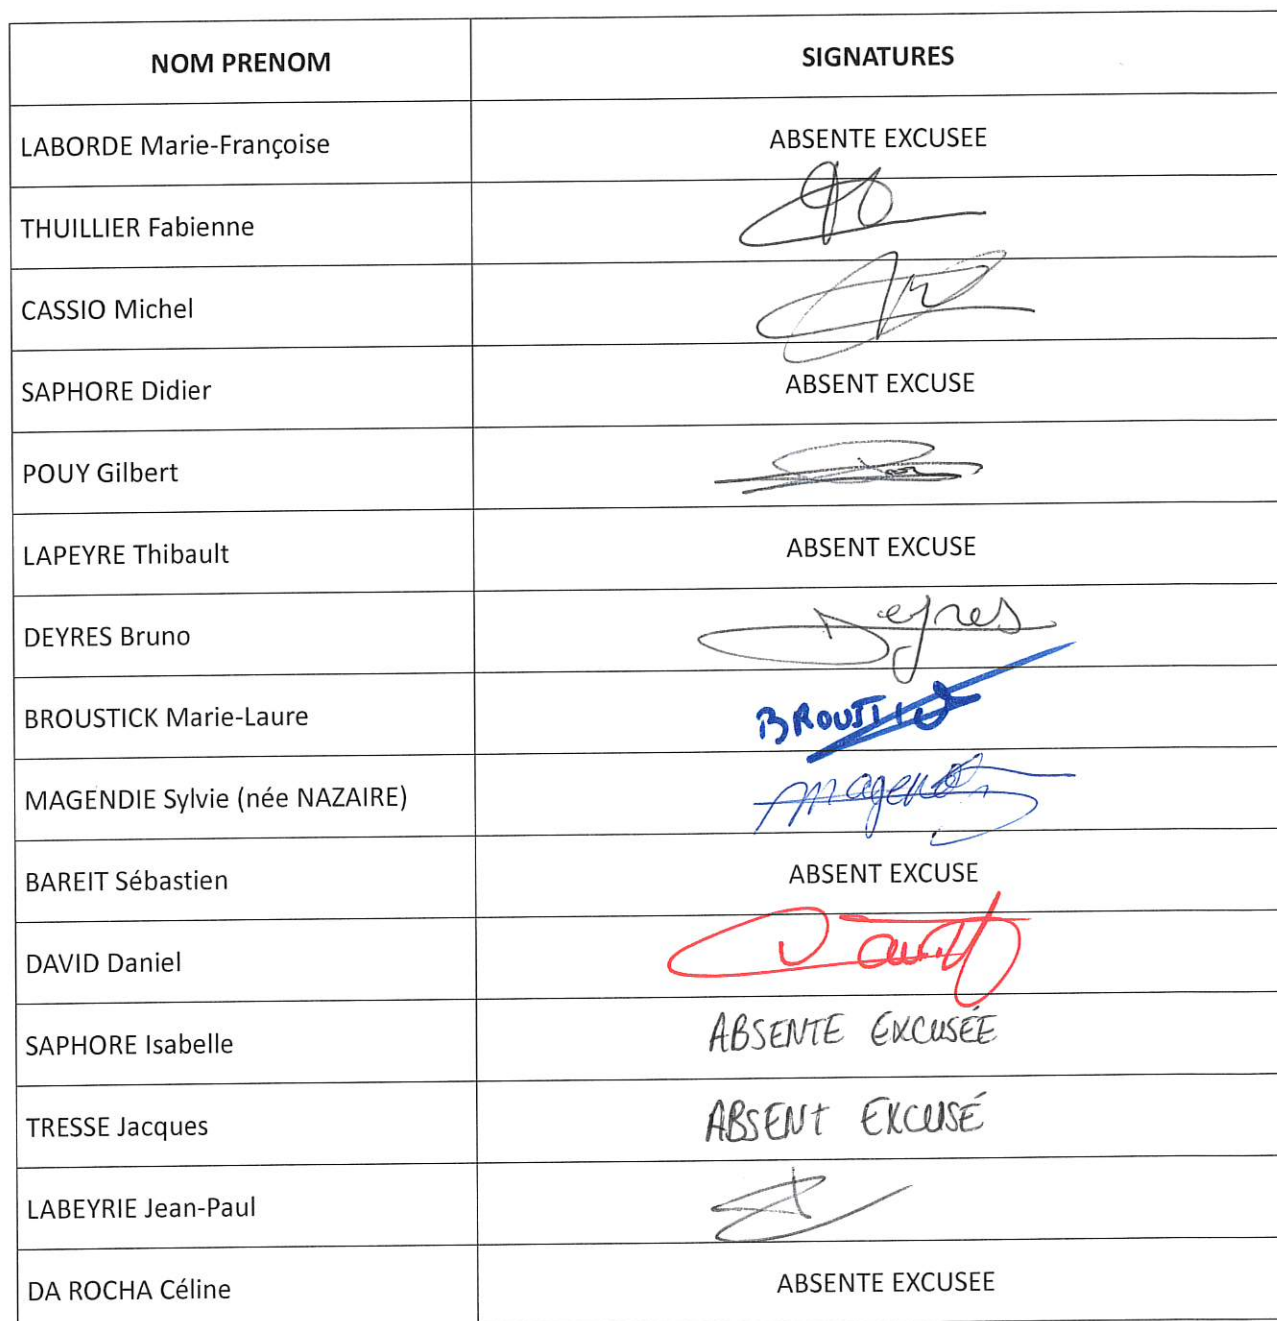 NOM PRENOM SIGNATURES
LABORDE Marie-Françoise ABSENTE EXCUSEE
THUILLIER Fabienne
CASSIO Michel
SAPHORE Didier ABSENT EXCUSE
POUY Gilbert
LAPEYRE Thibault ABSENT EXCUSE
DEYRES Bruno Deyres
BROUSTICK Marie-Laure
MAGENDIE Sylvie (née NAZAIRE)
BAREIT Sébastien ABSENT EXCUSE
DAVID Daniel David
SAPHORE Isabelle ABSENTE EXCUSÉE
TRESSE Jacques ABSENT EXCUSÉ
LABEYRIE Jean-Paul
DA ROCHA Céline ABSENTE EXCUSEE